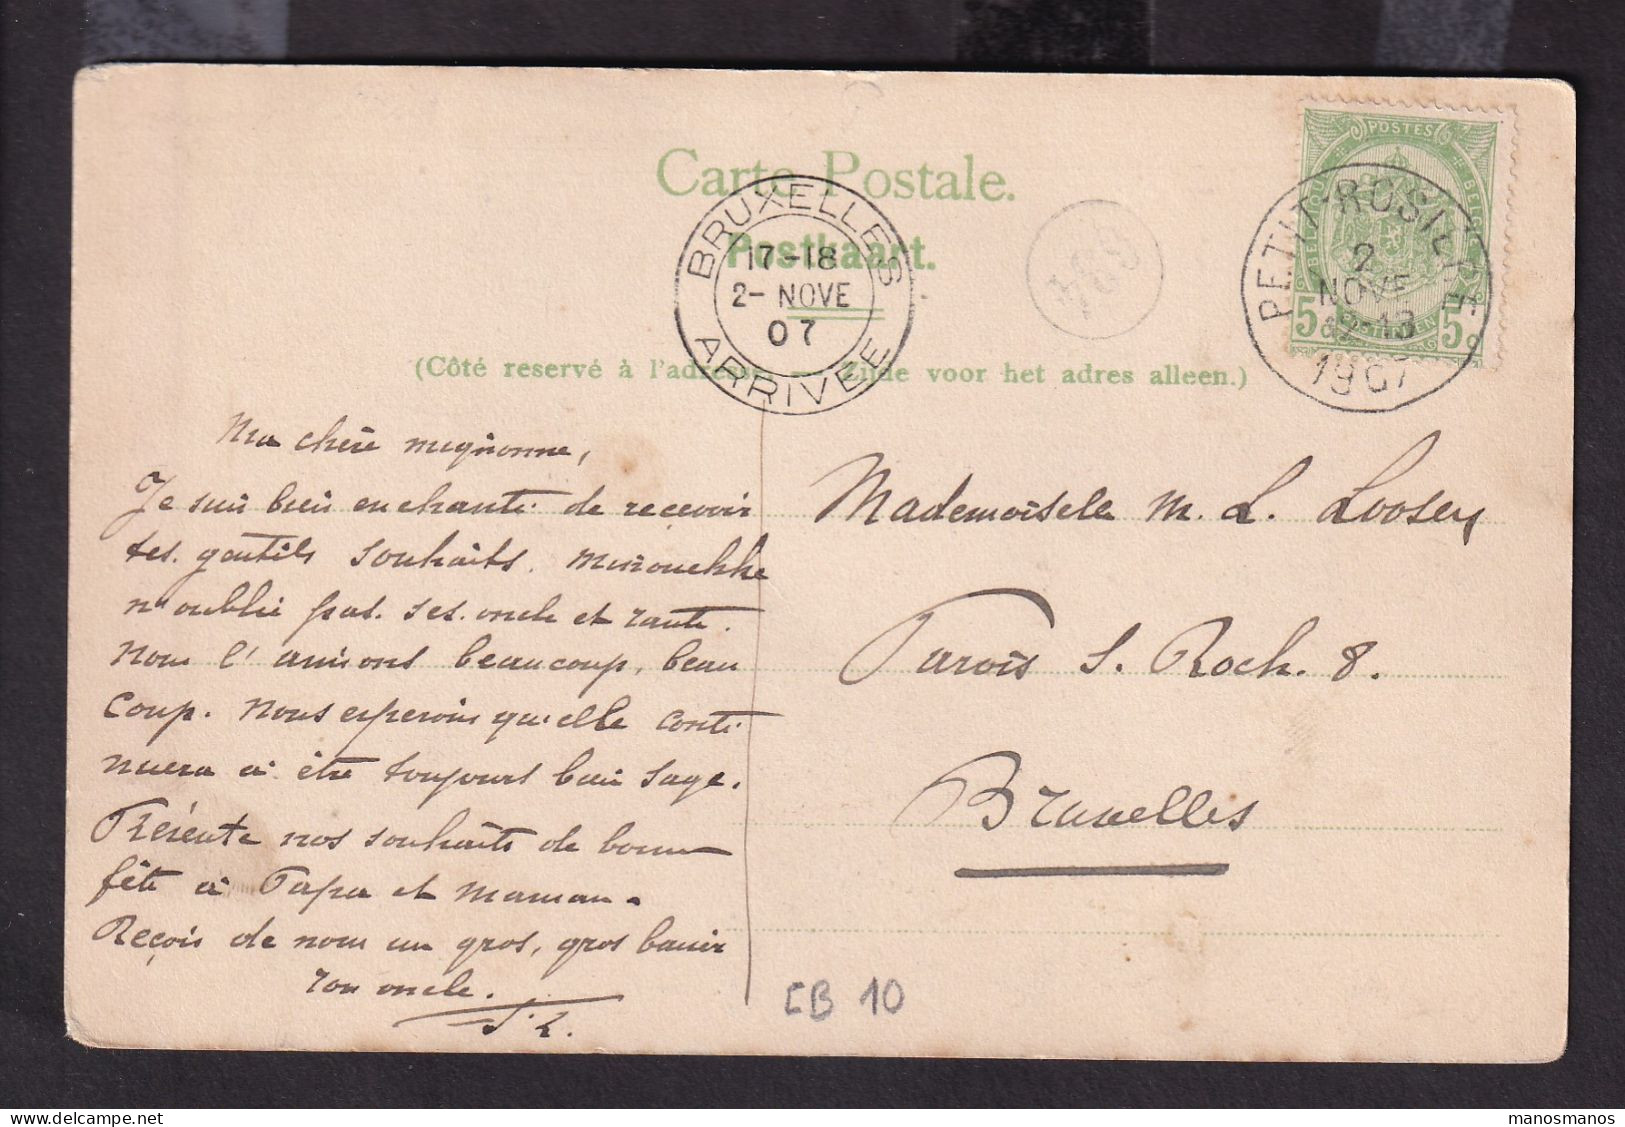 Carte Postale.
Postkaart.
(Côté reservé à l'adresse. — Zijde voor het adres alleen.)
BRUXELLES
17-18
2- NOVE
07
ARRIVEE
POSTES
BELGIQUE
BELGIE
5c
5c
PETIT-ROSIERE
2
NOVE
12-13
1907
Ma chère mignonne,
Je suis bien enchanté de recevoir
tes gentils souhaits. Minouchke
n'oublie pas ses oncle et tante.
Nous l'aimons beaucoup, beau
coup. Nous esperons qu'elle conti
nuera à être toujours bien sage.
Présente nos souhaits de bonne
fête à Papa et Maman.
Reçois de nous un gros, gros baiser
Ton oncle.
Mademoiselle M. L. Loosen
Parvis S. Roch. 8.
Bruxelles
CB 10
manosmanos